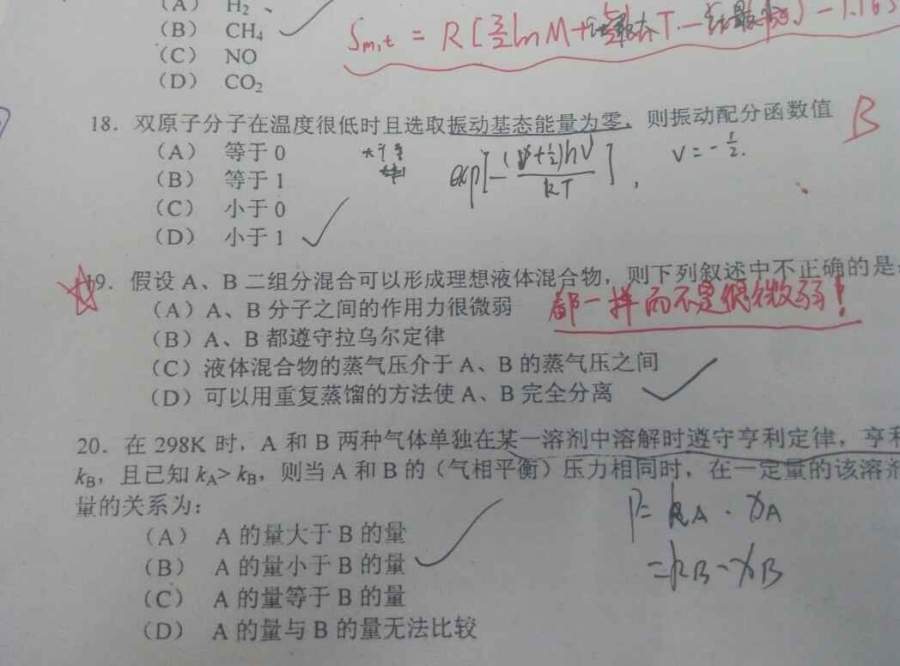 (A) H₂
(B) CH₄ ✓
(C) NO
(D) CO₂
Sm,t = R[3/2 lnM+ T- ] - 1.165
18. 双原子分子在温度很低时且选取振动基态能量为零，则振动配分函数值 B
(A) 等于 0
(B) 等于 1
(C) 小于 0
(D) 小于 1 ✓
exp[-(v+½)hν/kT], V=-½.
19. 假设 A、B 二组分混合可以形成理想液体混合物，则下列叙述中不正确的是
(A) A、B 分子之间的作用力很微弱 都一样而不是很微弱！
(B) A、B 都遵守拉乌尔定律
(C) 液体混合物的蒸气压介于 A、B 的蒸气压之间
(D) 可以用重复蒸馏的方法使 A、B 完全分离 ✓
20. 在 298K 时，A 和 B 两种气体单独在某一溶剂中溶解时遵守亨利定律，亨利
kB，且已知 kA> kB，则当 A 和 B 的（气相平衡）压力相同时，在一定量的该溶剂
量的关系为：
(A) A 的量大于 B 的量
(B) A 的量小于 B 的量 ✓
(C) A 的量等于 B 的量
(D) A 的量与 B 的量无法比较
P= kA · xA
=kB - xB